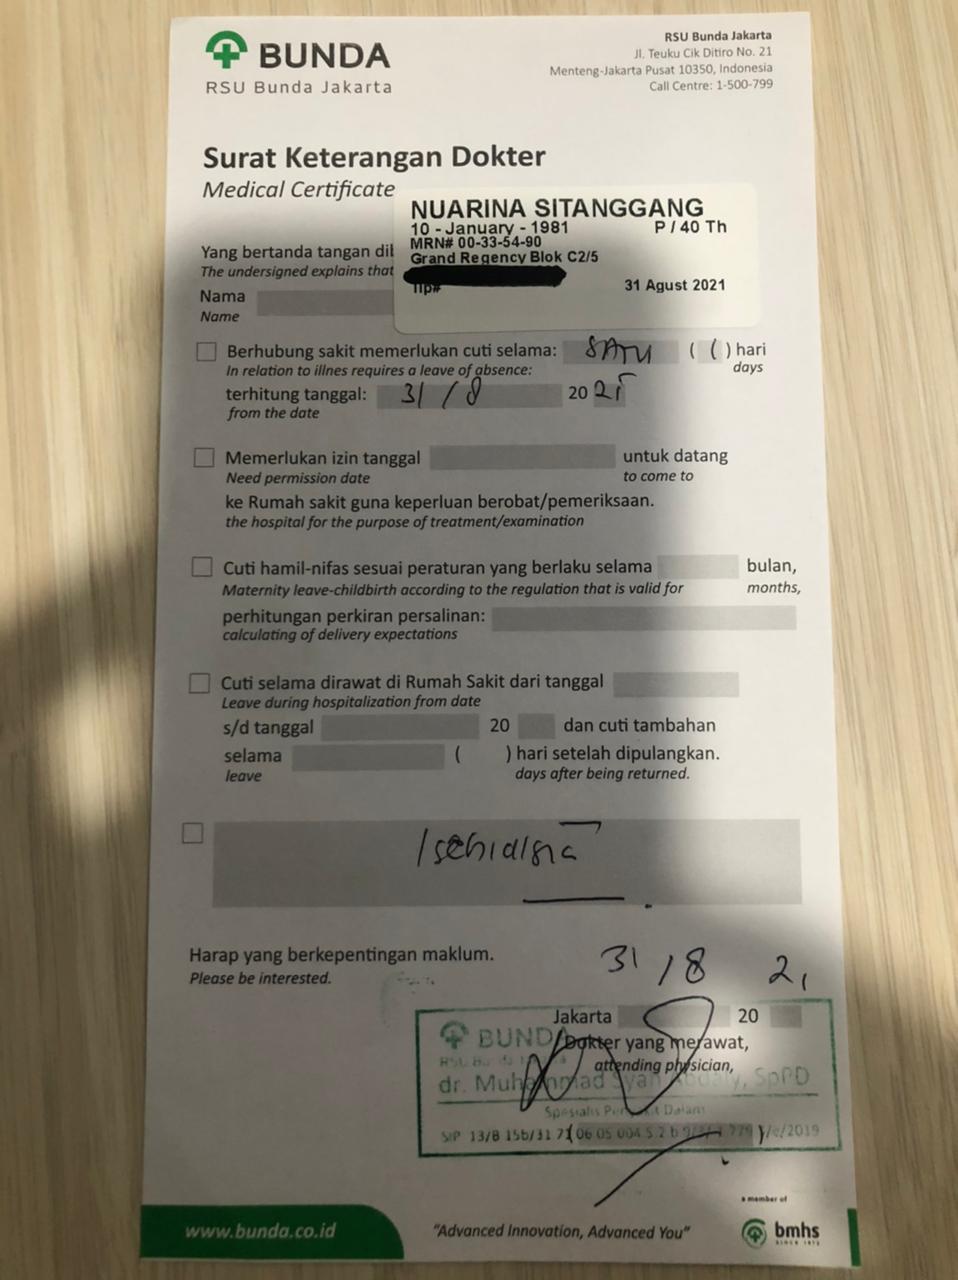 BUNDA
RSU Bunda Jakarta
RSU Bunda Jakarta
Jl. Teuku Cik Ditiro No. 21
Menteng-Jakarta Pusat 10350, Indonesia
Call Centre: 1-500-799
Surat Keterangan Dokter
Medical Certificate
NUARINA SITANGGANG
10 - January - 1981 P / 40 Th
MRN# 00-33-54-90
Grand Regency Blok C2/5
Tlp# 31 Agust 2021
Yang bertanda tangan
The undersigned explains that
Nama
Name
Berhubung sakit memerlukan cuti selama: SATU ( ( ) hari
In relation to illnes requires a leave of absence: days
terhitung tanggal: 31 / 8 20
from the date
Memerlukan izin tanggal untuk datang
Need permission date to come to
ke Rumah sakit guna keperluan berobat/pemeriksaan.
the hospital for the purpose of treatment/examination
Cuti hamil-nifas sesuai peraturan yang berlaku selama bulan,
Maternity leave-childbirth according to the regulation that is valid for months,
perhitungan perkiran persalinan:
calculating of delivery expectations
Cuti selama dirawat di Rumah Sakit dari tanggal
Leave during hospitalization from date
s/d tanggal 20 dan cuti tambahan
selama ( ) hari setelah dipulangkan.
leave days after being returned.
Harap yang berkepentingan maklum.
Please be interested.
31 / 8 21
Jakarta 20
BUNDA
Dokter yang merawat,
attending physician,
dr. Muhammad SpPD
Spesialis Penyakit Dalam
SIP 13/B 15b/31 71
www.bunda.co.id
"Advanced Innovation, Advanced You"
a member of
bmhs
SINCE 1973